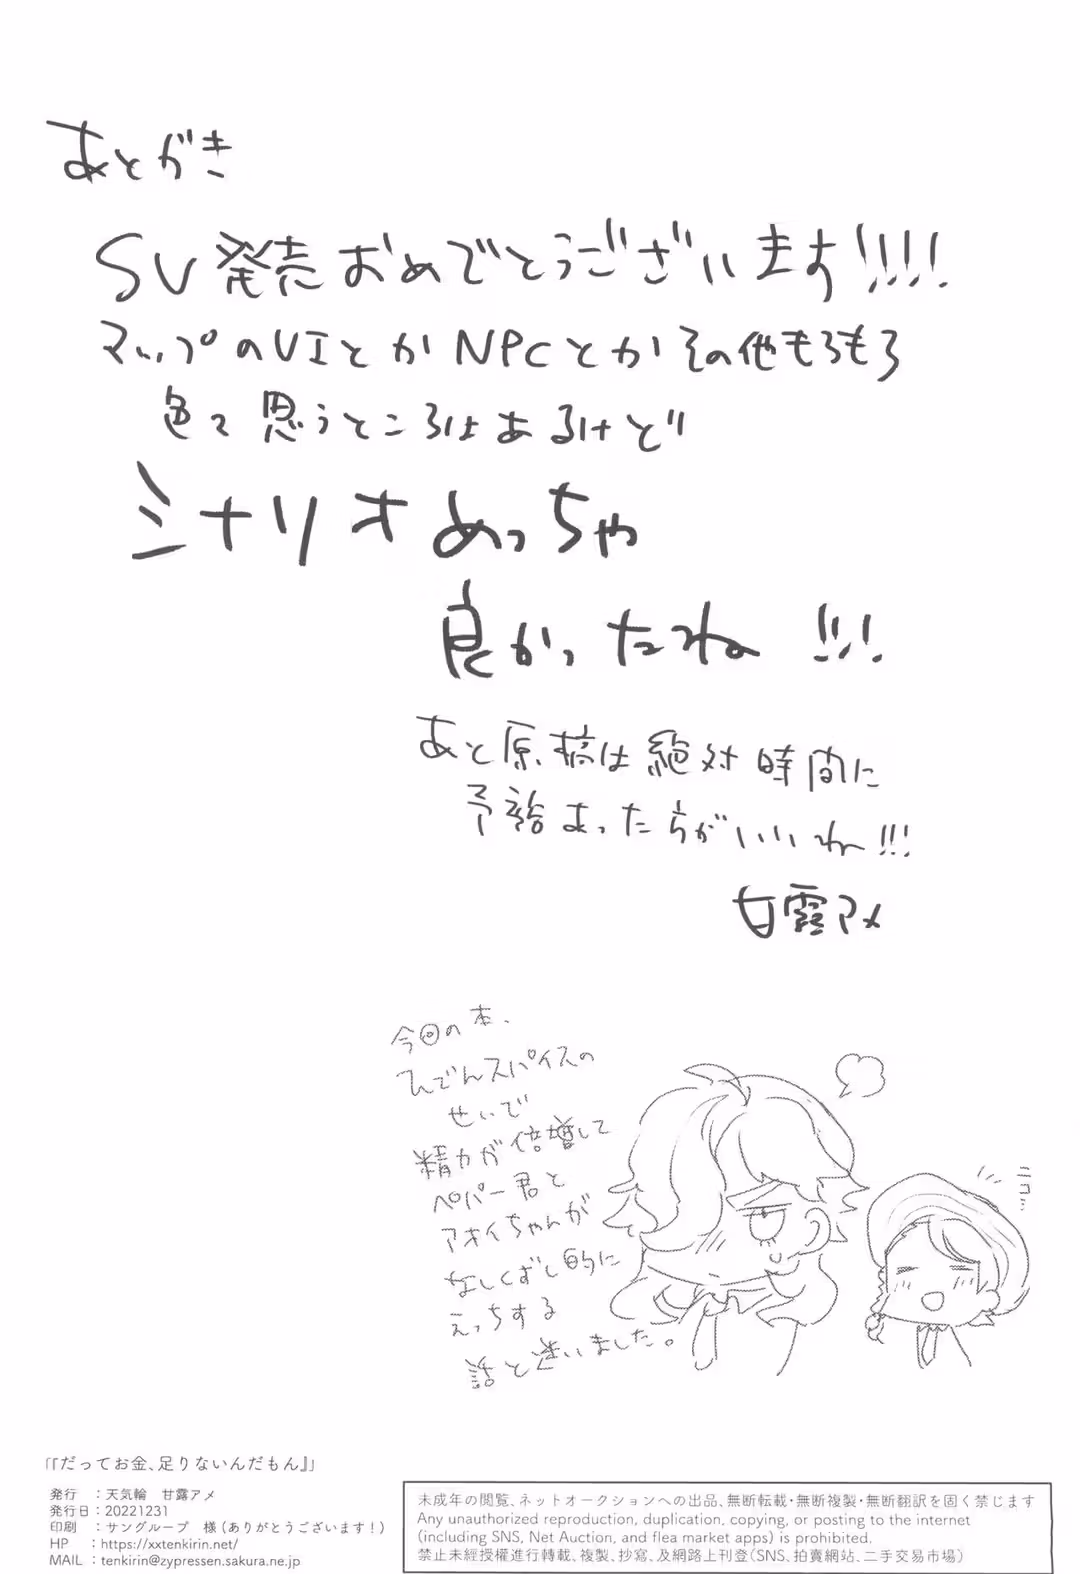 あとがき
SV発売おめでとうございます!!!!
マップのUIとかNPCとかその他もろもろ
色々思うところはあるけど
シナリオめっちゃ
良かったね!!!
あと原稿は絶対時間に
予裕あった方がいいね!!!
甘露アメ
今回の本、
ひでんスパイスの
せいで
精力が倍増して
ペパー君と
アオイちゃんが
なしくずし的に
えっちする
話と迷いました。
ニコ
「『だってお金、足りないんだもん』」
発行 : 天気輪 甘露アメ
発行日 : 20221231
印刷 : サングループ 様 (ありがとうございます!)
HP : https://xxtenkirin.net/
MAIL : tenkirin@zypressen.sakura.ne.jp
未成年の閲覧、ネットオークションへの出品、無断転載・無断複製・無断翻訳を固く禁じます
Any unauthorized reproduction, duplication, copying, or posting to the internet
(including SNS, Net Auction, and flea market apps) is prohibited.
禁止未經授權進行轉載、複製、抄寫、及網路上刊登(SNS、拍賣網站、二手交易市場)